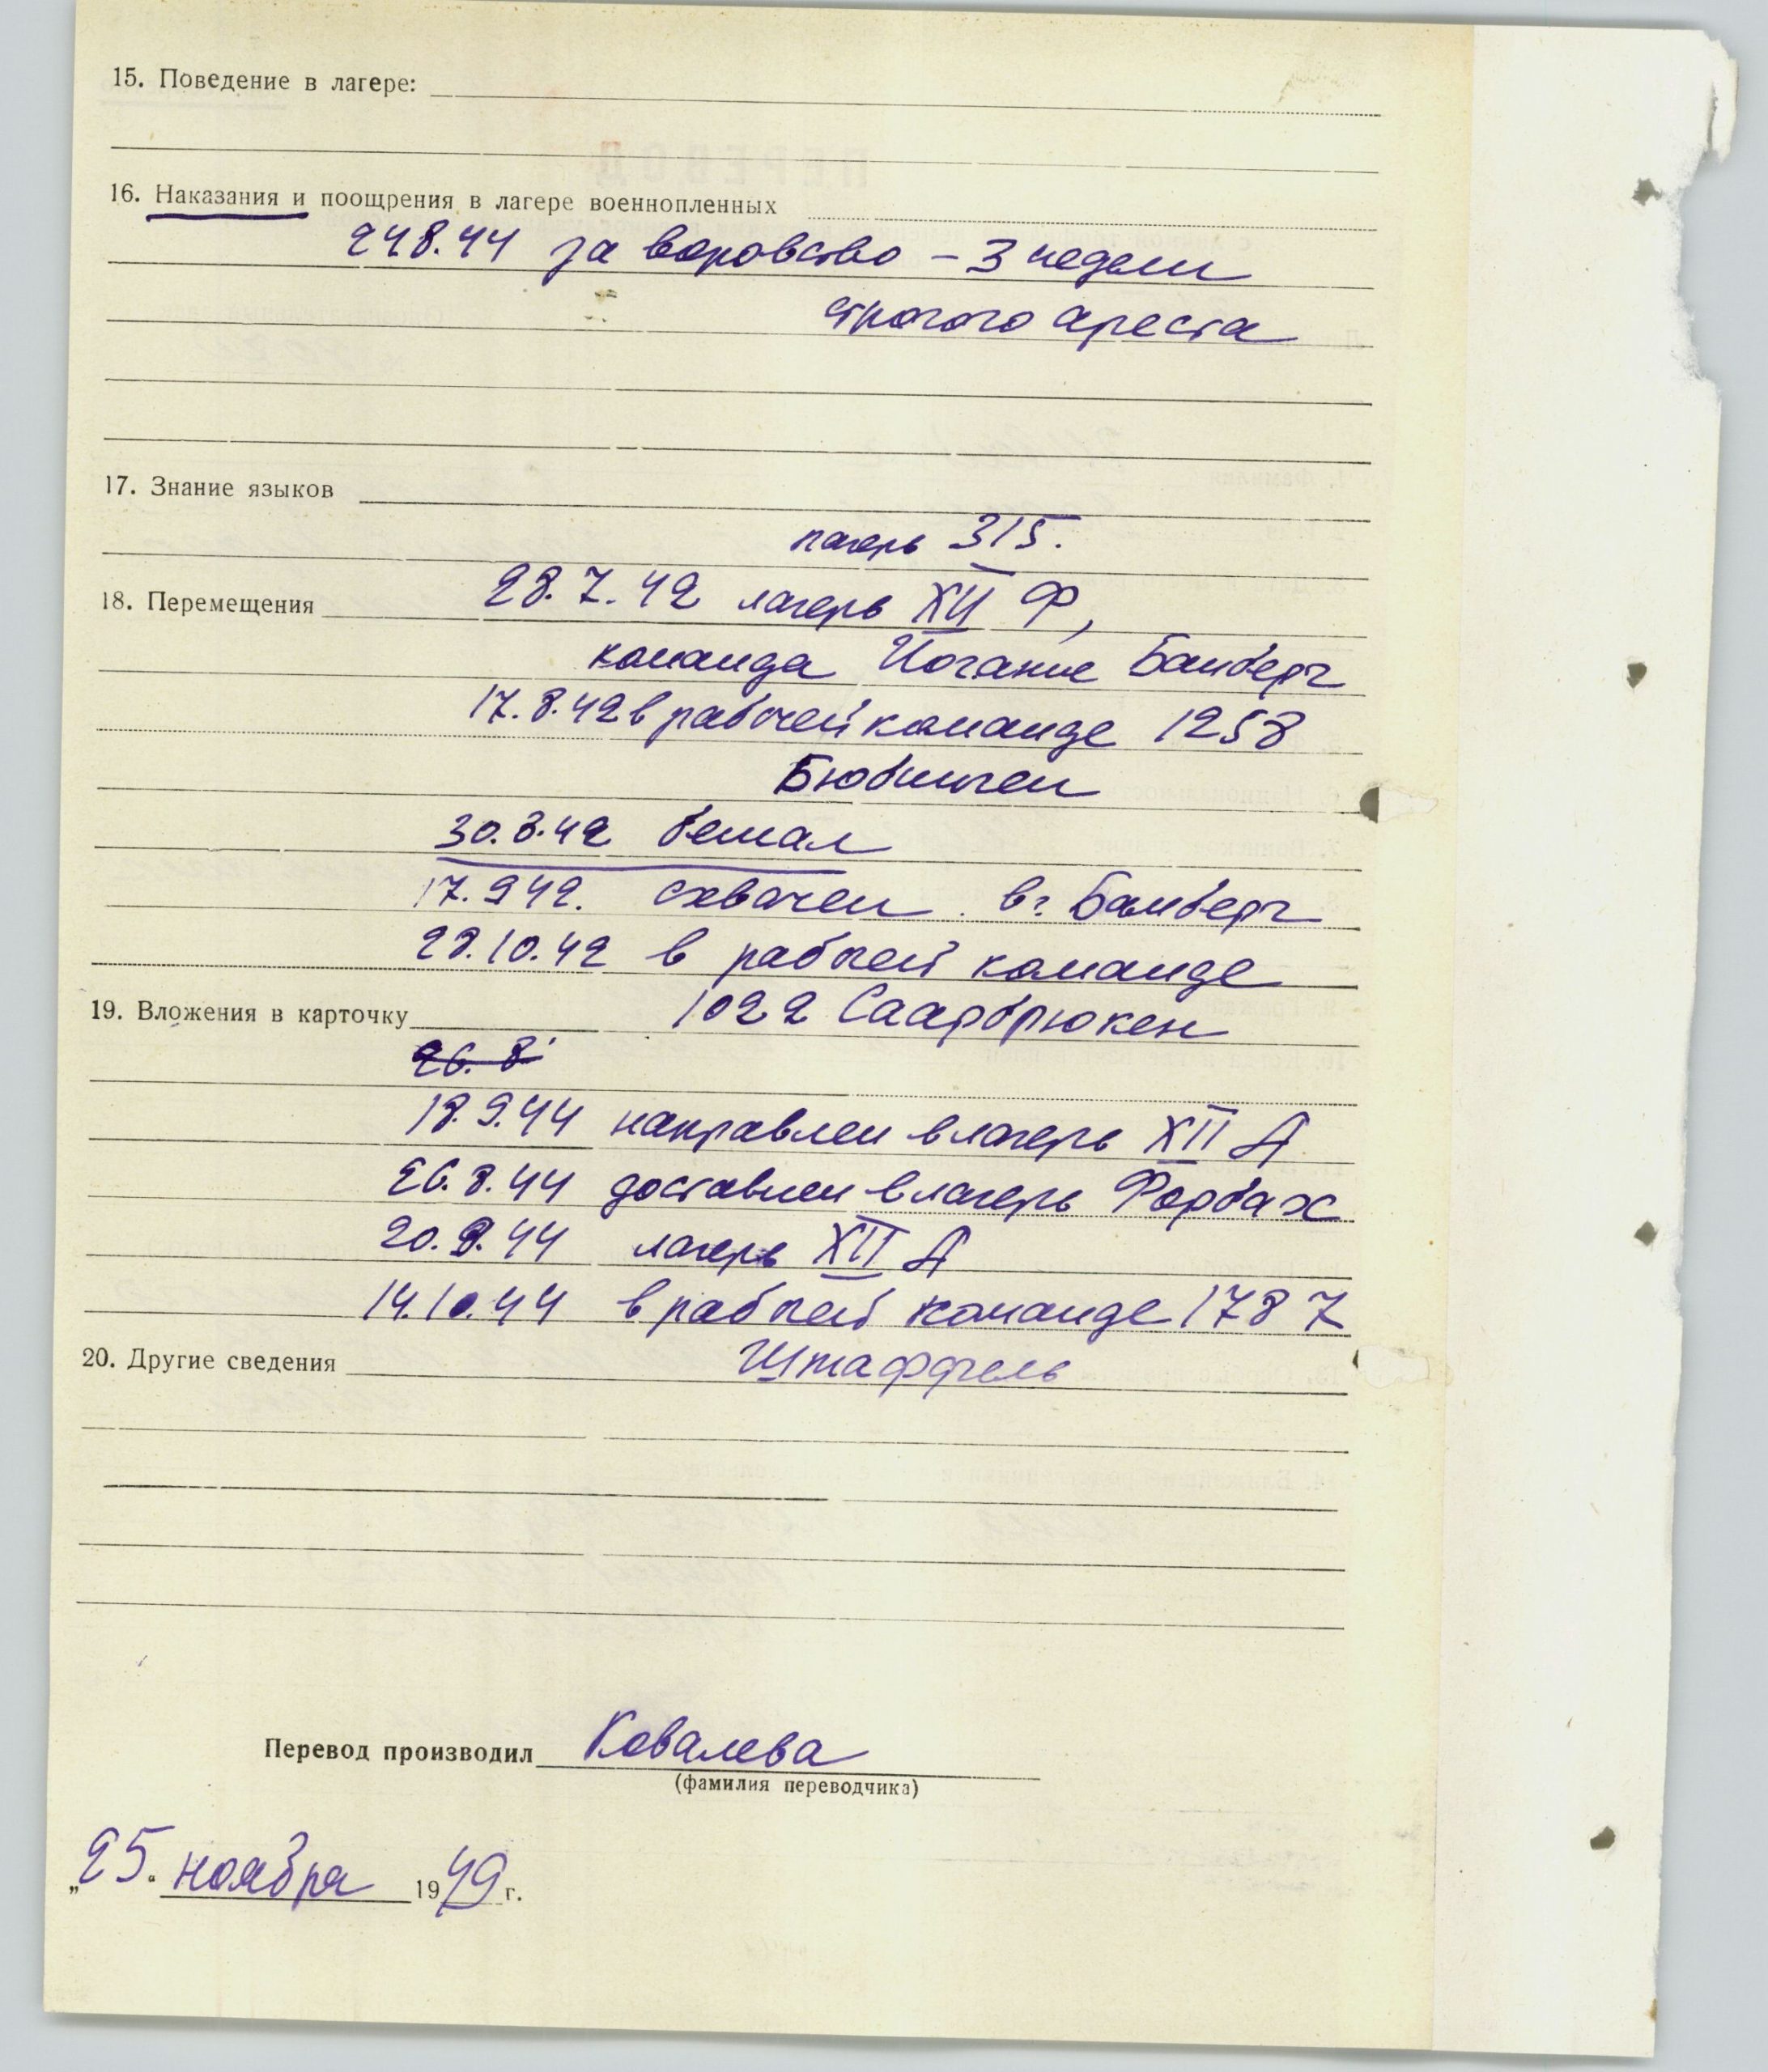 15. Поведение в лагере:
16. Наказания и поощрения в лагере военнопленных
24 8.44 за воровство – 3 недели
строгого ареста
17. Знание языков
лагерь 315.
18. Перемещения 28.7.42 лагерь XII Ф,
команда Иоганис Бамберг
17.8.42 в рабочей команде 1258
Бюбинген
30.8.42 бежал
17.9 42. схвачен. в г. Бамберг
28.10.42 в рабочей команде
19. Вложения в карточку 1022 Саарбрюкен
26. 8
18.9.44 направлен в лагерь XII А
26.8.44 доставлен в лагерь Форбах
20.9.44 лагерь XII А
14.10.44 в рабочей команде 1787
20. Другие сведения Штаффель
Перевод производил Ковалева
(фамилия переводчика)
„25. ноября 1949 г.